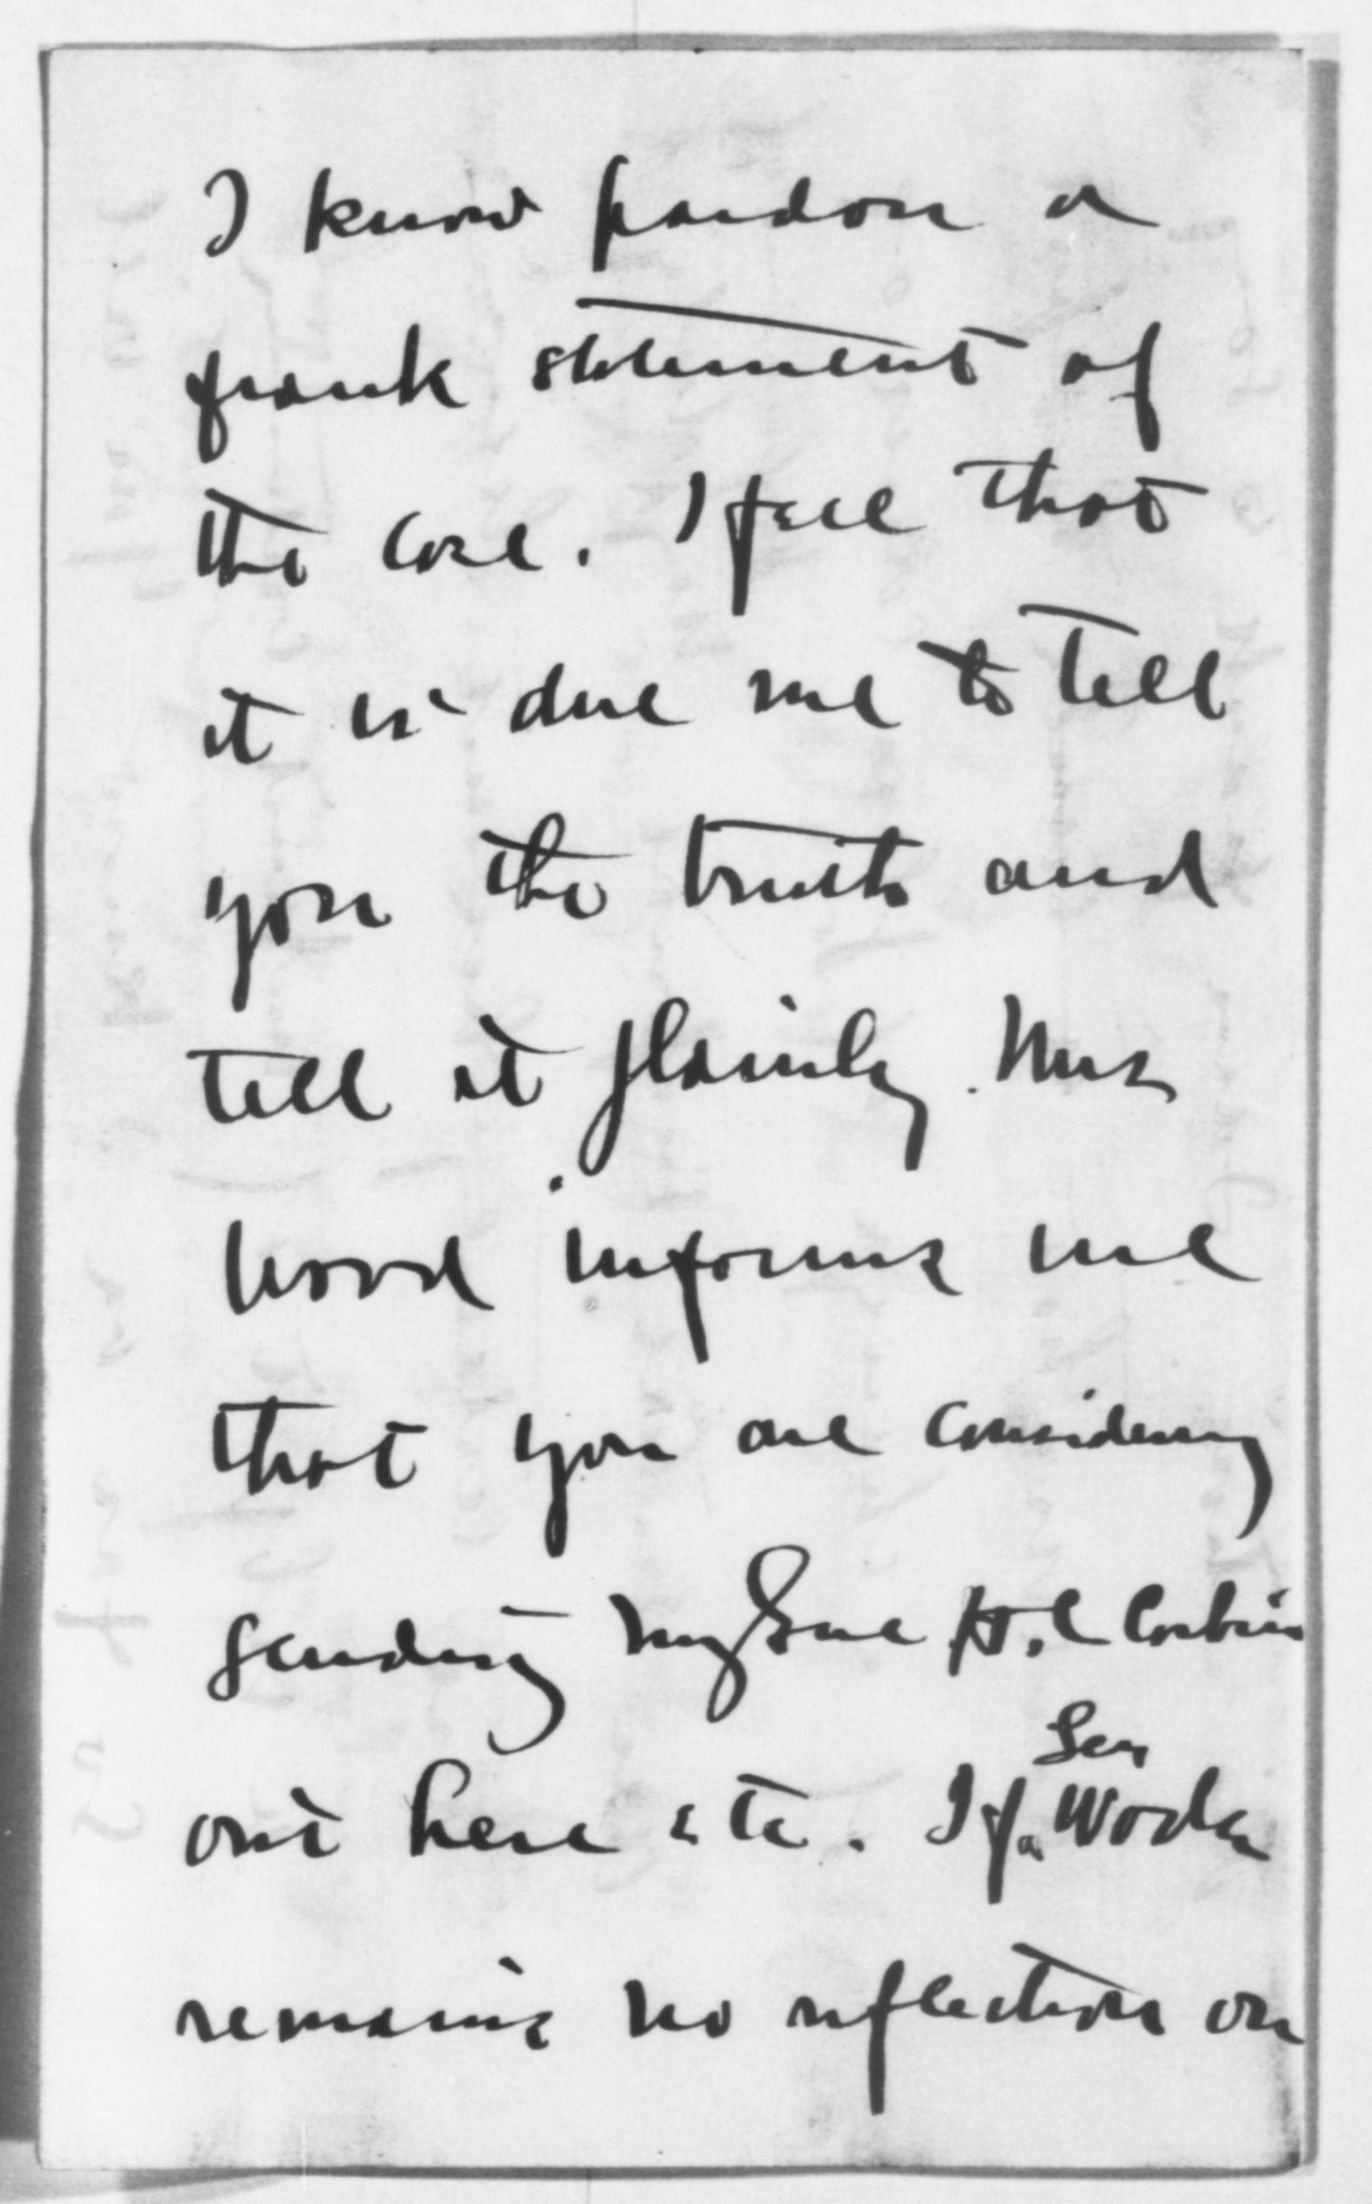 I know pardon a
frank statement of
the case. I feel that
it is due me to tell
you the truth and
tell it plainly. Mrs
Wood informs me
that you are considering
sending Maj Gen H. C Corbin
out here etc. If Gen Wade
remains no reflection on